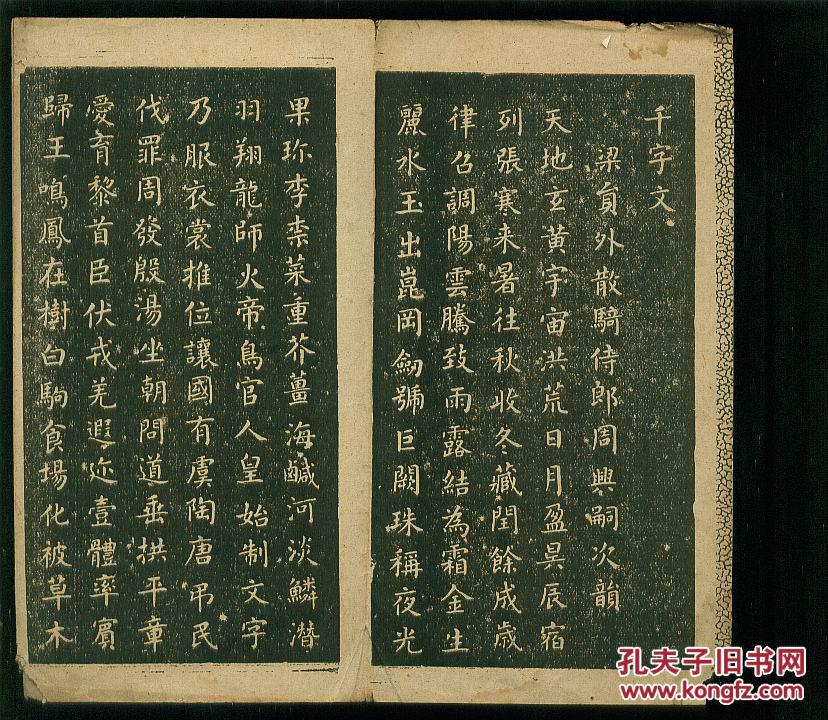 千字文
梁員外散騎侍郎周興嗣次韻
天地玄黃宇宙洪荒日月盈昃辰宿
列張寒来暑往秋收冬藏閏餘成歲
律召調陽雲騰致雨露結為霜金生
麗水玉出崑岡劒號巨闕珠稱夜光
果珎李柰菜重芥薑海鹹河淡鱗潛
羽翔龍師火帝鳥官人皇始制文字
乃服衣裳推位讓國有虞陶唐弔民
伐罪周發殷湯坐朝問道垂拱平章
愛育黎首臣伏戎羌遐迩壹體率賓
歸王鳴鳳在樹白駒食場化被草木
孔夫子旧书网
www.kongfz.com